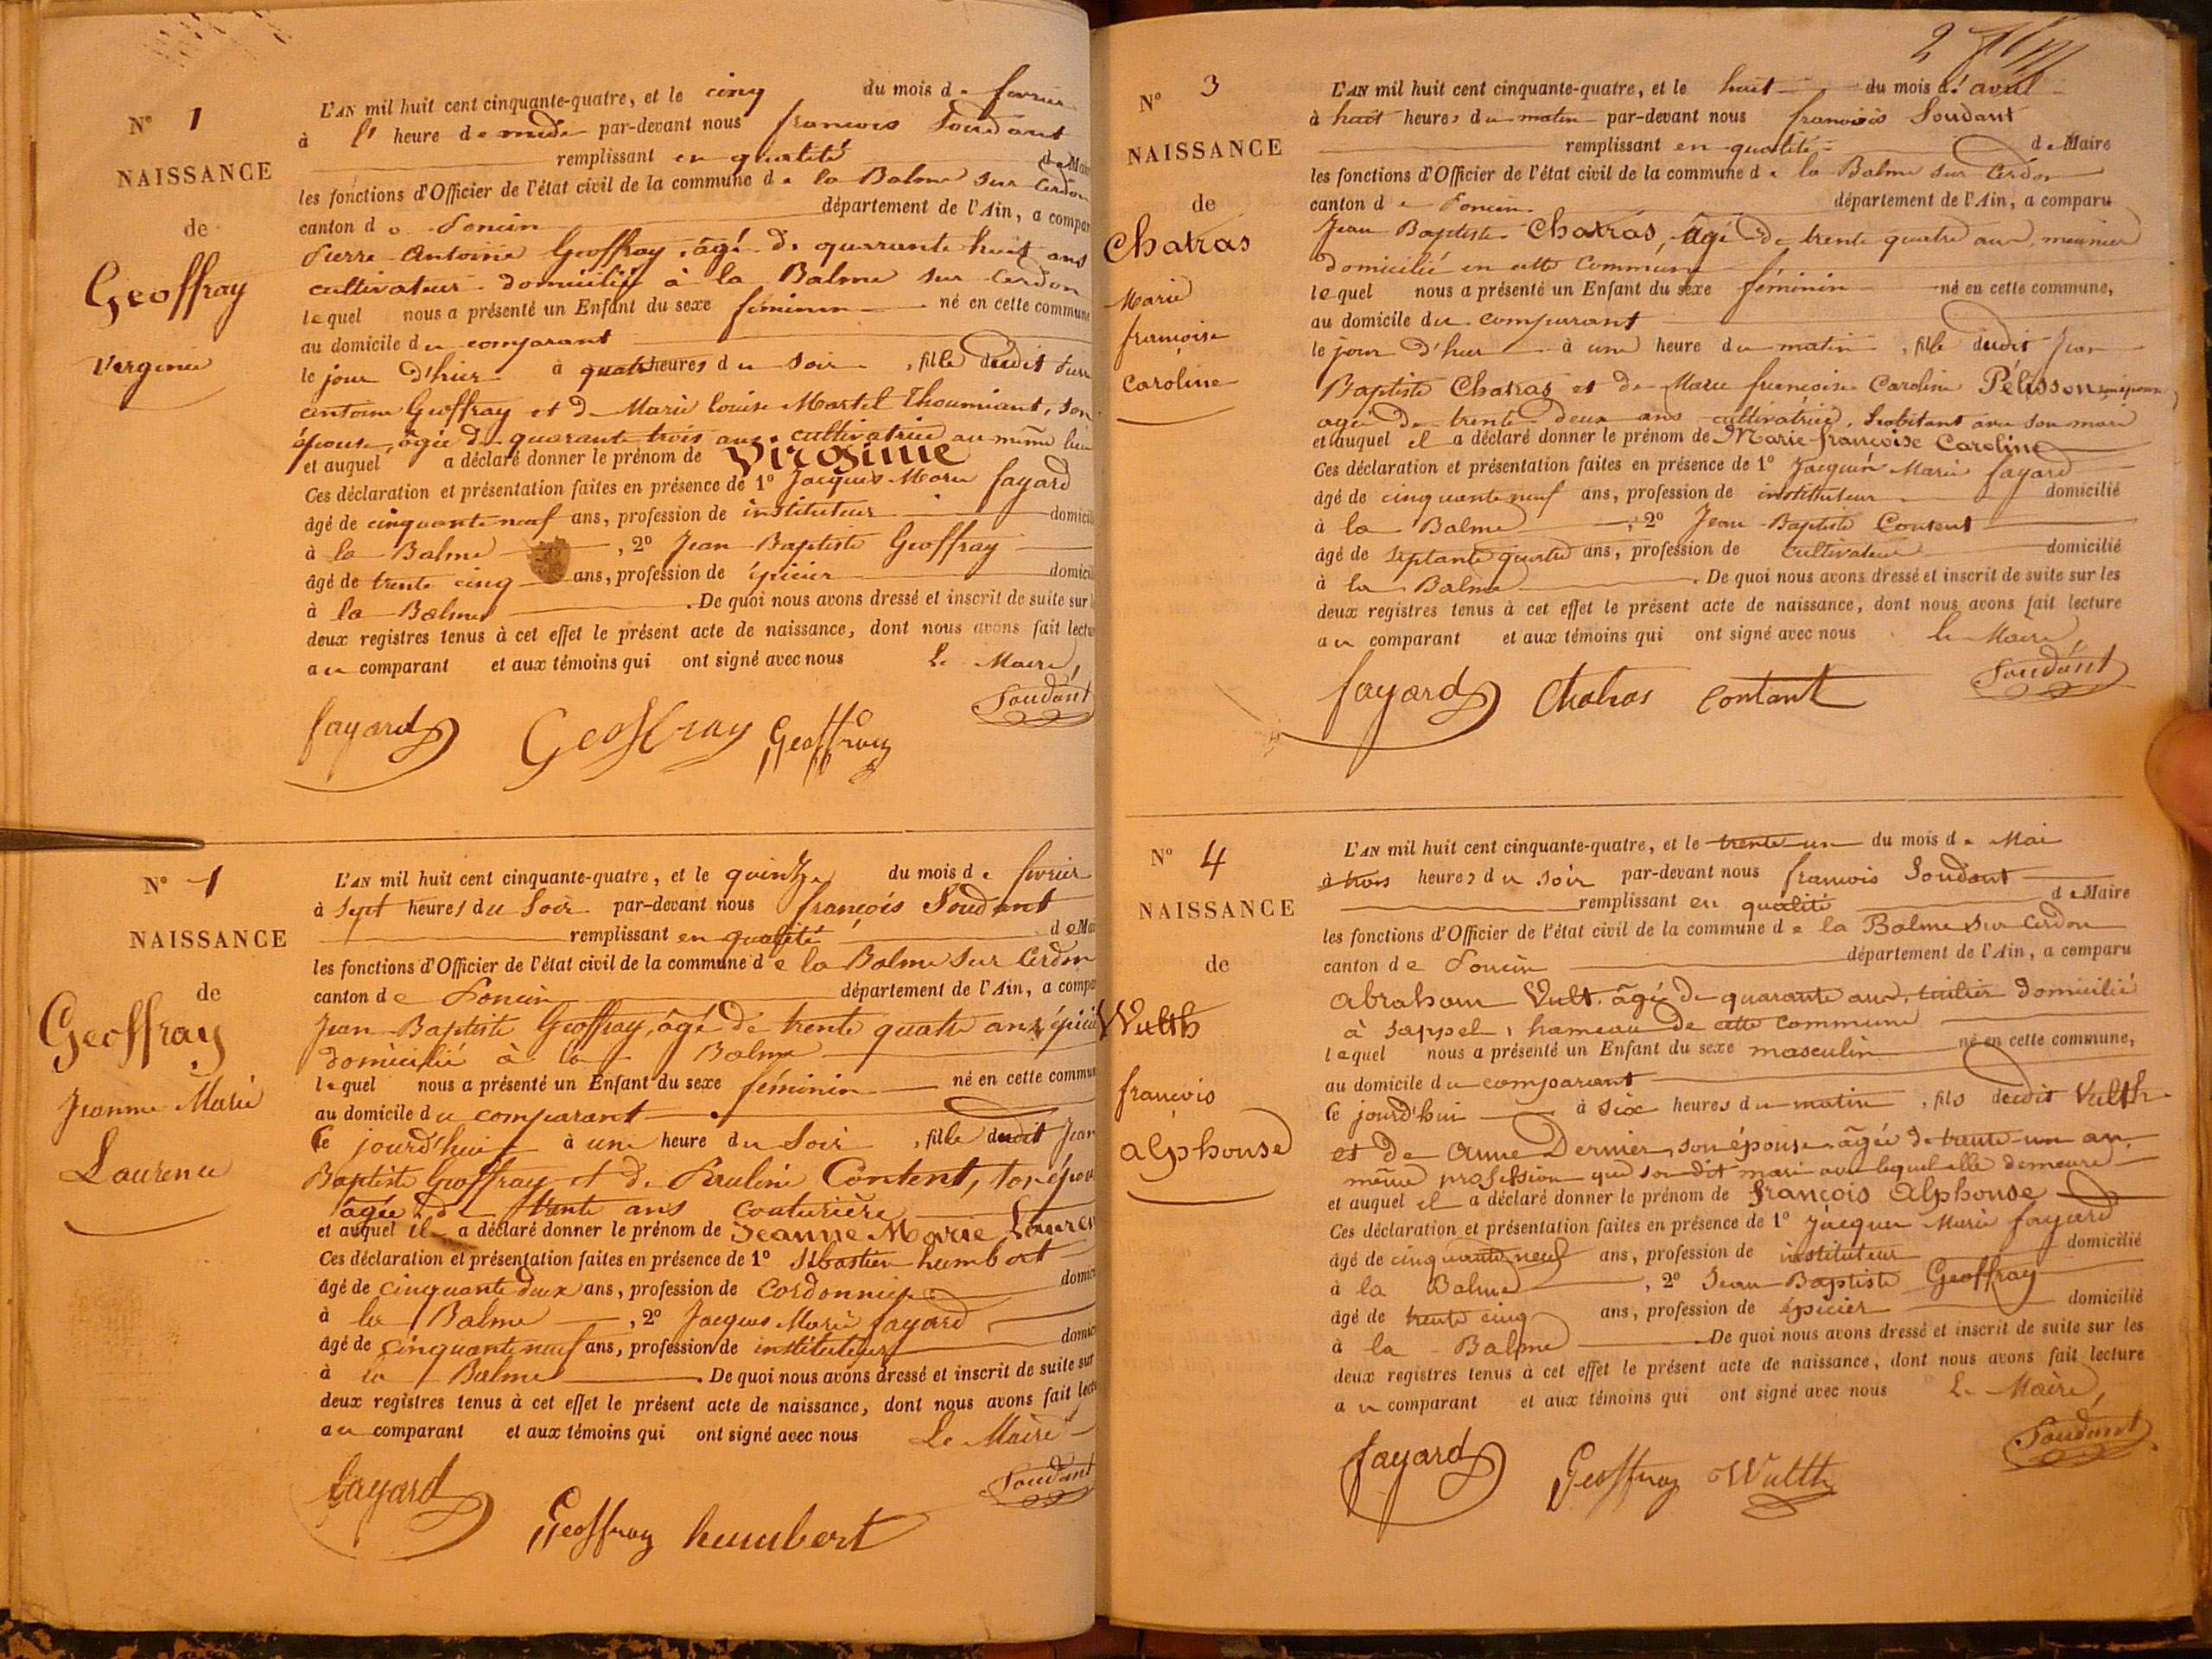 N° 1
NAISSANCE
de
Geoffray
Virginie
L'AN mil huit cent cinquante-quatre, et le cinq du mois de février
à l' heure de midi par-devant nous françois Soudant
remplissant en qualité de Mair
les fonctions d'Officier de l'état civil de la commune de la Balme sur Cerdon
canton de Poncin département de l'Ain, a compar
Pierre Antoine Geoffray, âgé de quarante huit ans
cultivateur domicilié à la Balme sur Cerdon
lequel nous a présenté un Enfant du sexe féminin né en cette commune
au domicile du comparant
le jour d'hier à quatre heures du soir, fille dudit Pierre
antoine Geoffray et de Marie louise Martel Thoumiant, son
épouse, âgée de quarante trois ans, cultivatrice au même lieu
et auquel a déclaré donner le prénom de Virginie
Ces déclaration et présentation faites en présence de 1° Jacques Marie fayard
âgé de cinquante neuf ans, profession de instituteur domicili
à la Balme, 2° Jean Baptiste Geoffray
âgé de trente cinq ans, profession de épicier domicili
à la Balme. De quoi nous avons dressé et inscrit de suite sur l
deux registres tenus à cet effet le présent acte de naissance, dont nous avons fait lectu
au comparant et aux témoins qui ont signé avec nous Le Maire,
Soudant
fayard Geoffray Geoffray
N° 1
NAISSANCE
de
Geoffray
Jeanne Marie
Laurence
L'AN mil huit cent cinquante-quatre, et le quinze du mois de février
à sept heures du soir par-devant nous françois Soudant
remplissant en qualité de Mai
les fonctions d'Officier de l'état civil de la commune de la Balme sur Cerdon
canton de Poncin département de l'Ain, a compa
Jean Baptiste Geoffray, âgé de trente quatre ans, épicie
domicilié à la Balme
lequel nous a présenté un Enfant du sexe féminin né en cette commun
au domicile du comparant
Ce jourd'hui à une heure du soir, fille dudit Jean
Baptiste Geoffray et de Pauline Content, son épou
âgée de trente ans couturière
et auquel il a déclaré donner le prénom de Jeanne Marie Lauren
Ces déclaration et présentation faites en présence de 1° Sébastien humbert
âgé de cinquante deux ans, profession de Cordonnier domici
à la Balme, 2° Jacques Marie fayard
âgé de cinquante neuf ans, profession de instituteur domici
à la Balme. De quoi nous avons dressé et inscrit de suite sur
deux registres tenus à cet effet le présent acte de naissance, dont nous avons fait lectu
au comparant et aux témoins qui ont signé avec nous Le Maire
Soudant
fayard Geoffray humbert
2
N° 3
NAISSANCE
de
Chatras
Marie
françoise
Caroline
L'AN mil huit cent cinquante-quatre, et le huit du mois d'avril
à huit heures du matin par-devant nous françois Soudant
remplissant en qualité de Maire
les fonctions d'Officier de l'état civil de la commune de la Balme sur Cerdon
canton de Poncin département de l'Ain, a comparu
Jean Baptiste Chatras, âgé de trente quatre ans, meunier
domicilié en cette Commune
lequel nous a présenté un Enfant du sexe féminin né en cette commune,
au domicile du comparrant
le jour d'hier à une heure du matin, fille dudit Jean
Baptiste Chatras et de Marie françoise Caroline Pelisson son épouse
agée de trente deux ans cultivatrice, habitant avec son mari
et auquel il a déclaré donner le prénom de Marie françoise Caroline
Ces déclaration et présentation faites en présence de 1° Jacques Marie fayard
âgé de cinquante neuf ans, profession de instituteur domicilié
à la Balme, 2° Jean Baptiste Contant
âgé de septante quatre ans, profession de cultivateur domicilié
à la Balme. De quoi nous avons dressé et inscrit de suite sur les
deux registres tenus à cet effet le présent acte de naissance, dont nous avons fait lecture
au comparant et aux témoins qui ont signé avec nous le Maire,
Soudant
fayard Chatras contant
N° 4
NAISSANCE
de
Wulth
françois
alphonse
L'AN mil huit cent cinquante-quatre, et le trente-un du mois de Mai
à trois heures du soir par-devant nous françois Soudant
remplissant en qualité de Maire
les fonctions d'Officier de l'état civil de la commune de la Balme sur Cerdon
canton de Poncin département de l'Ain, a comparu
abraham Vult, âgé de quarante ans, tuilier domicilié
à sappel, hameau de cette commune
lequel nous a présenté un Enfant du sexe masculin né en cette commune,
au domicile du comparant
Ce jourd'hui à six heures du matin, fils dudit Vulth
et de Anne Dernier, son épouse, âgée de trente-un an,
même profession que son dit mari avec lequel elle demeure
et auquel il a déclaré donner le prénom de françois Alphonse
Ces déclaration et présentation faites en présence de 1° Jacques Marie fayard
âgé de cinquante neuf ans, profession de instituteur domicilié
à la Balme, 2° Jean Baptiste Geoffray
âgé de trente cinq ans, profession de épicier domicilié
à la Balme. De quoi nous avons dressé et inscrit de suite sur les
deux registres tenus à cet effet le présent acte de naissance, dont nous avons fait lecture
au comparant et aux témoins qui ont signé avec nous Le Maire,
Soudant
fayard Geoffray Wulth